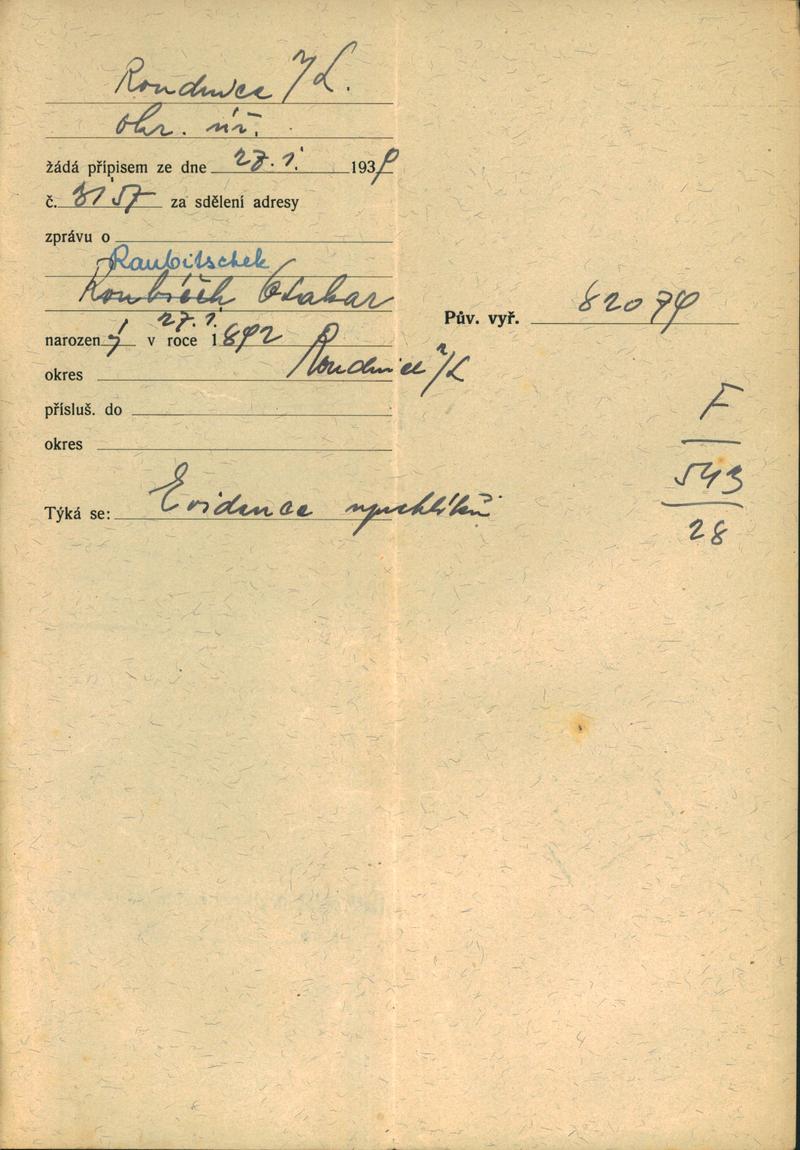 Roudnice n/L.
okr. úř.
žádá přípisem ze dne 27. 1. 1939
č. 3157 za sdělení adresy
zprávu o
Raubitschek
Roubíček Otakar
27. 1.
narozen ý v roce 1892
okres Roudnice n/L
přísluš. do
okres
Týká se: Evidence uprchlíků
Pův. vyř. 82079
F
543
28